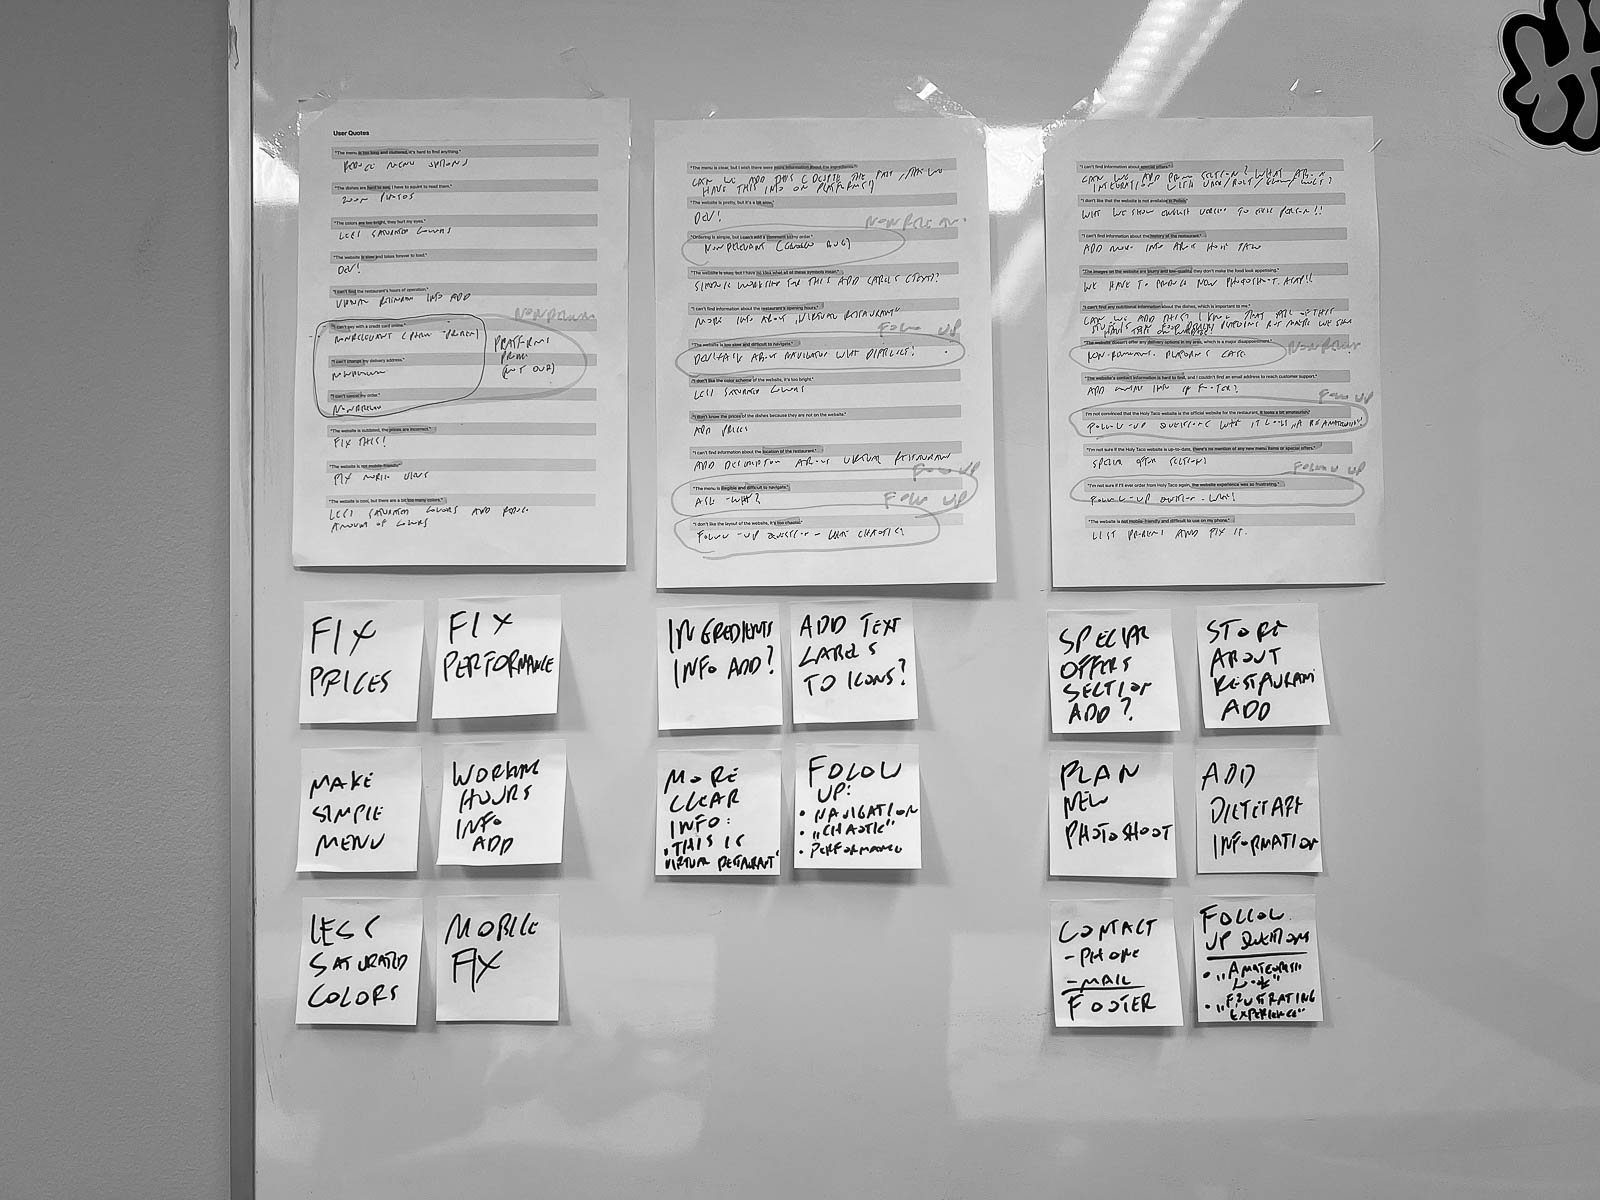 User Quotes
"The menu is too long and cluttered, it's hard to find anything."
REDUCE MENU OPTIONS
"The dishes are hard to see, I have to squint to read them."
ZOOM PHOTOS
"The colors are too bright, they hurt my eyes."
LESS SATURATED COLORS
"The website is slow and takes forever to load."
DEV!
"I can't find the restaurant's hours of operation."
VIRTUAL RESTAURANT INFO ADD
NONRELEVANT
"I can't pay with a credit card online."
NONRELEVANT
"I can't change my delivery address."
NONRELEVANT
PLATFORMS
PROBLEM
(NOT OUR)
"I can't cancel my order."
NONRELEVANT
"The website is outdated, the prices are incorrect."
FIX THIS!
"The website is not mobile-friendly"
FIX MOBILE VIEWS
"The website is cool, but there are a bit too many colors."
LESS SATURATED COLORS AND REDUCE
AMOUNT OF COLORS
"The menu is clear, but I wish there were more information about the ingredients."
CAN WE ADD THIS
HAVE THIS INFO ON PLATFORMS?)
"The website is pretty, but it's a bit slow."
DEV!
NONRELEVANT
"Ordering is simple, but I can't add a comment to my order."
NONRELEVANT
"The website is okay, but I have no idea what all of these symbols mean."
WORKING FOR THIS ADD LABELS (TEXT)?
"I can't find information about the restaurant's opening hours."
MORE INFO ABOUT "VIRTUAL RESTAURANT"
FOLLOW UP
"The website is too slow and difficult to navigate."
DEV/ASK ABOUT NAVIGATION WHAT DIFFICULT?
"I don't like the color scheme of the website, it's too bright."
LESS SATURATED COLORS
"I don't know the prices of the dishes because they are not on the website."
ADD PRICES
"I can't find information about the location of the restaurant."
ADD DESCRIPTION ABOUT VIRTUAL RESTAURANT
FOLLOW UP
"The menu is illegible and difficult to navigate."
ASK - WHY?
FOLLOW UP
"I don't like the layout of the website, it's too chaotic"
FOLLOW-UP QUESTION - WHAT CHAOTIC?
"I can't find information about special offers."
CAN WE ADD PROMO SECTION? WHAT ABOUT
INTEGRATION WITH UBER/BOLT/GLOVO/WOLT?
"I don't like that the website is not available in Polish"
WHY WE SHOW ENGLISH VERSION TO THIS PERSON?!
"I can't find information about the history of the restaurant."
ADD MORE INFO ABOUT HOLY TACO
"The images on the website are blurry and low-quality, they don't make the food look appetising."
WE HAVE TO NEW PHOTOSHOOT. ASAP!!
"I can't find any nutritional information about the dishes, which is important to me."
CAN WE ADD THIS? I KNOW THAT ALL OF THIS
"The website doesn't offer any delivery options in my area, which is a major disappointment."
NON-RELEVANT. PLATFORMS CASE.
NONRELEVANT
"The website's contact information is hard to find, and I couldn't find an email address to reach customer support."
ADD INFO FOOTER?
FOLLOW UP
"I'm not convinced that the Holy Taco website is the official website for the restaurant, it looks a bit amateurish."
FOLLOW-UP QUESTIONS WHY IT LOOKS
"I'm not sure if the Holy Taco website is up-to-date, there's no mention of any new menu items or special offers."
SPECIAL OFFER SECTION?
FOLLOW UP
"I'm not sure if I'll ever order from Holy Taco again, the website experience was so frustrating."
FOLLOW-UP QUESTION - WHY?
"The website is not mobile-friendly and difficult to use on my phone."
LIST PROBLEMS AND FIX IT.
FIX
PRICES
FIX
PERFORMANCE
INGREDIENTS
INFO ADD?
ADD TEXT
LABELS
TO ICONS?
SPECIAL
OFFERS
SECTION
ADD?
STORE
ABOUT
RESTAURANT
ADD
MAKE
SIMPLE
MENU
WORKING
HOURS
INFO
ADD
MORE
CLEAR
INFO:
• THIS IS
VIRTUAL RESTAURANT'
FOLOW
UP:
• NAVIGATION
• „CHAOTIC"
• PERFORMANCE
PLAN
NEW
PHOTOSHOOT
ADD
DIETETARY
INFORMATION
LESS
SATURATED
COLORS
MOBILE
FIX
CONTACT
- PHONE
- MAIL
FOOTER
FOLLOW
UP QUESTIONS
• „AMATEURISH
LOOK"
• „FRUSTRATING
EXPERIENCE"